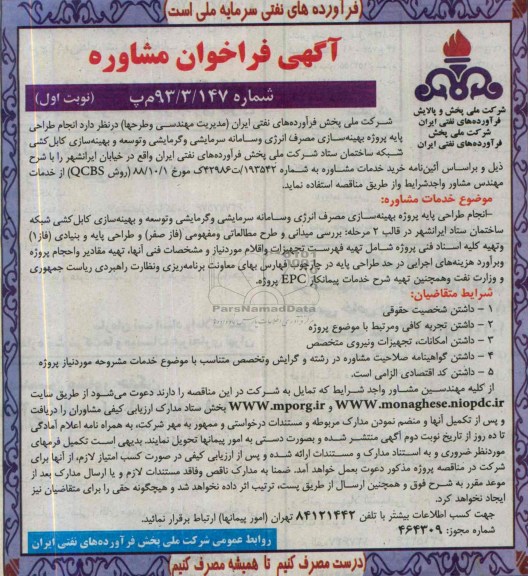 فرآورده های نفتی سرمایه ملی است
آگهی فراخوان مشاوره
شماره ۹۳/۳/۱۴۷م‌پ (نوبت اول)
شرکت ملی پخش و پالایش
فرآورده‌های نفتی ایران
شرکت ملی پخش
فرآورده‌های نفتی ایران
شرکت ملی پخش فرآورده‌های نفتی ایران (مدیریت مهندسی وطرحها) درنظر دارد انجام طراحی
پایه پروژه بهینه‌سازی مصرف انرژی وسامانه سرمایشی وگرمایشی وتوسعه و بهینه‌سازی کابل‌کشی
شبکه ساختمان ستاد شرکت ملی پخش فرآورده‌های نفتی ایران واقع در خیابان ایرانشهر را با شرح
ذیل و براساس آئین‌نامه خرید خدمات مشاوره به شماره ۱۹۳۵۴۲/ت۴۲۹۸۶ک مورخ ۸۸/۱۰/۱ (روش QCBS) از خدمات
مهندس مشاور واجدشرایط واز طریق مناقصه استفاده نماید.
موضوع خدمات مشاوره:
-انجام طراحی پایه پروژه بهینه‌سازی مصرف انرژی وسامانه سرمایشی وگرمایشی وتوسعه و بهینه‌سازی کابل‌کشی شبکه
ساختمان ستاد ایرانشهر در قالب ۲ مرحله: بررسی میدانی و طرح مطالعاتی ومفهومی (فاز صفر) و طراحی پایه و بنیادی (فاز۱)
وتهیه کلیه اسناد فنی پروژه شامل تهیه فهرست تجهیزات واقلام موردنیاز و مشخصات فنی آنها، تهیه مقادیر واحجام پروژه
وبرآورد هزینه‌های اجرایی در حد طراحی پایه در چارچوب فهارس بهای معاونت برنامه‌ریزی ونظارت راهبردی ریاست جمهوری
و وزارت نفت وهمچنین تهیه شرح خدمات پیمانکار EPC پروژه.
ParsNamadData
شرایط متقاضیان:
۱ - داشتن شخصیت حقوقی
۲ - داشتن تجربه کافی ومرتبط با موضوع پروژه
۳ - داشتن امکانات، تجهیزات ونیروی متخصص
۴ - داشتن گواهینامه صلاحیت مشاوره در رشته و گرایش وتخصص متناسب با موضوع خدمات مشروحه موردنیاز پروژه
۵ - داشتن کد اقتصادی الزامی است.
از کلیه مهندسین مشاور واجد شرایط که تمایل به شرکت در این مناقصه را دارند دعوت می‌شود از طریق سایت
WWW.monaghese.niopdc.ir و WWW.mporg.ir بخش ستاد مدارک ارزیابی کیفی مشاوران را دریافت
و پس از تکمیل آنها و منضم نمودن مدارک مربوطه و مستندات درخواستی و ممهور به مهر شرکت، به همراه نامه اعلام آمادگی
تا ده روز از تاریخ نوبت دوم آگهی منتشر شده و بصورت دستی به امور پیمانها تحویل نمایند. بدیهی است تکمیل فرمهای
موردنظر ضروری و به استناد مدارک و مستندات ارائه شده و پس از ارزیابی کیفی در صورت کسب امتیاز لازم، از آنها برای
شرکت در مناقصه پروژه مذکور دعوت بعمل خواهد آمد. ضمنا به مدارک ناقص وفاقد مستندات لازم و یا ارسال مدارک بعد از
موعد مقرر به شرح فوق و همچنین ارسال از طریق پست، ترتیب اثر داده نخواهد شد و هیچگونه حقی را برای متقاضیان نیز
ایجاد نخواهد کرد.
جهت کسب اطلاعات بیشتر با تلفن ۸۴۱۲۱۴۴۲ تهران (امور پیمانها) ارتباط برقرار نمائید.
شماره مجوز: ۴۶۴۳۰۹
روابط عمومی شرکت ملی پخش فرآورده‌های نفتی ایران
درست مصرف کنیم تا همیشه مصرف کنیم